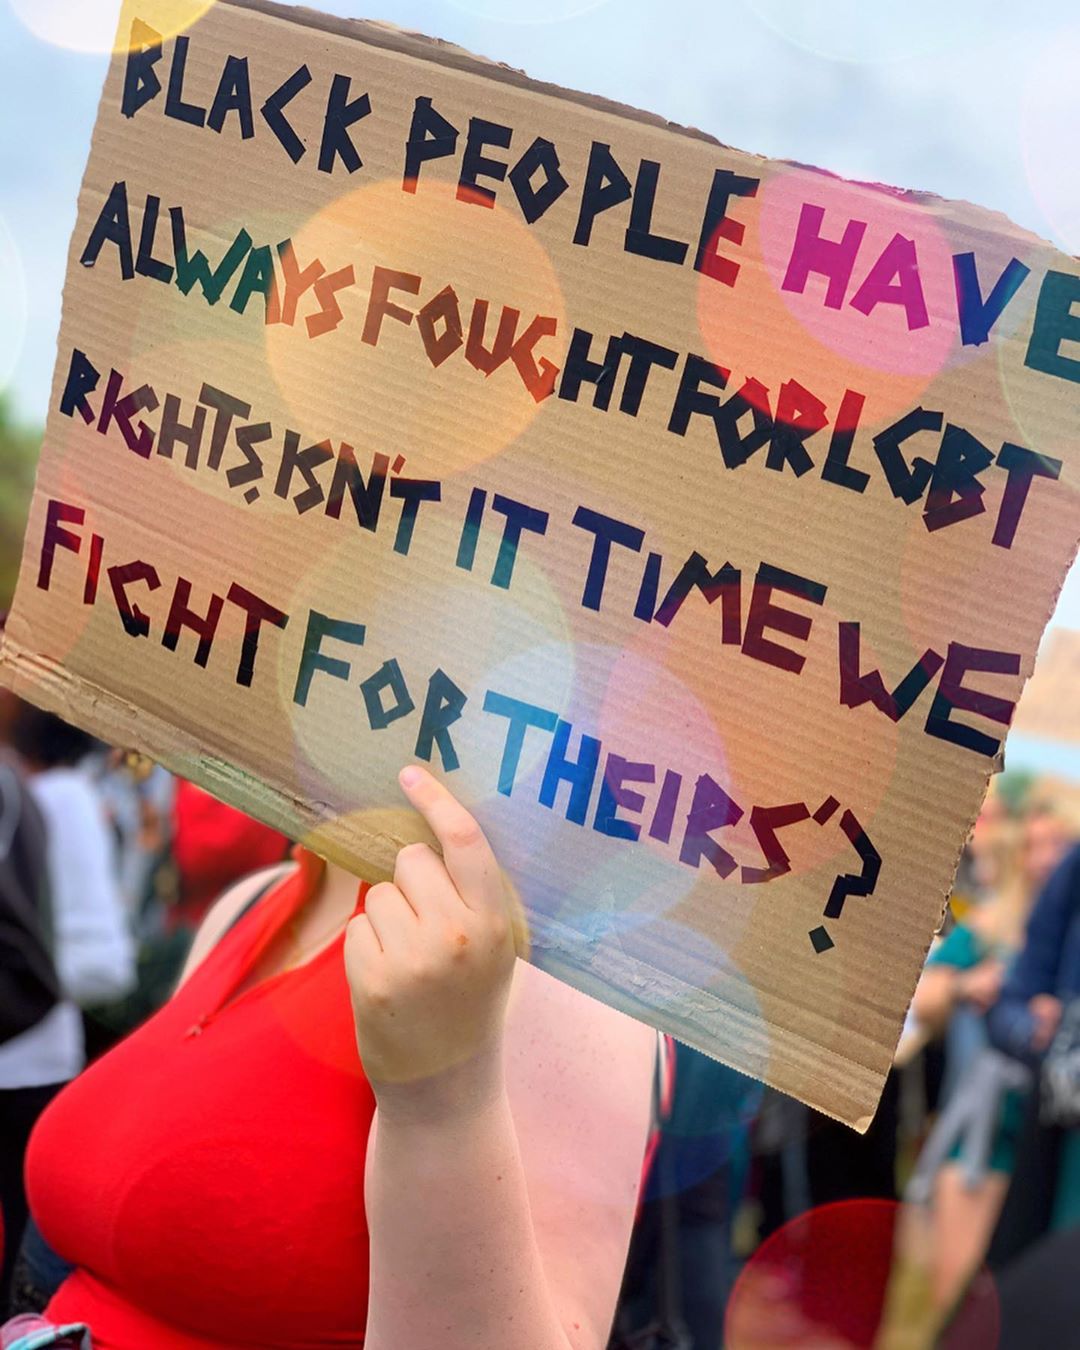 BLACK PEOPLE HAVE
ALWAYS FOUGHT FOR LGBT
RIGHTS, ISN'T IT TIME WE
FIGHT FOR THEIRS'?